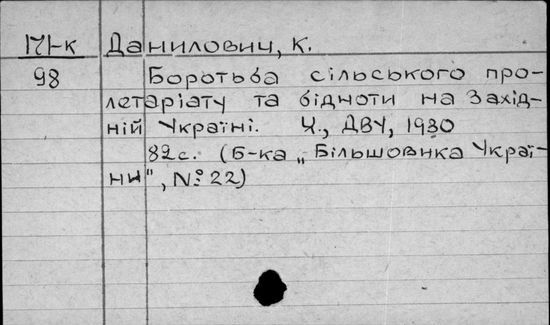 171-к Данилович, К.
98 Боротьба сільського про-
летаріату та бідноти на Захід-
ній Україні. Х., ДВУ, 1930
82с. (Б-ка „Більшовика Украї-
ни", №22)